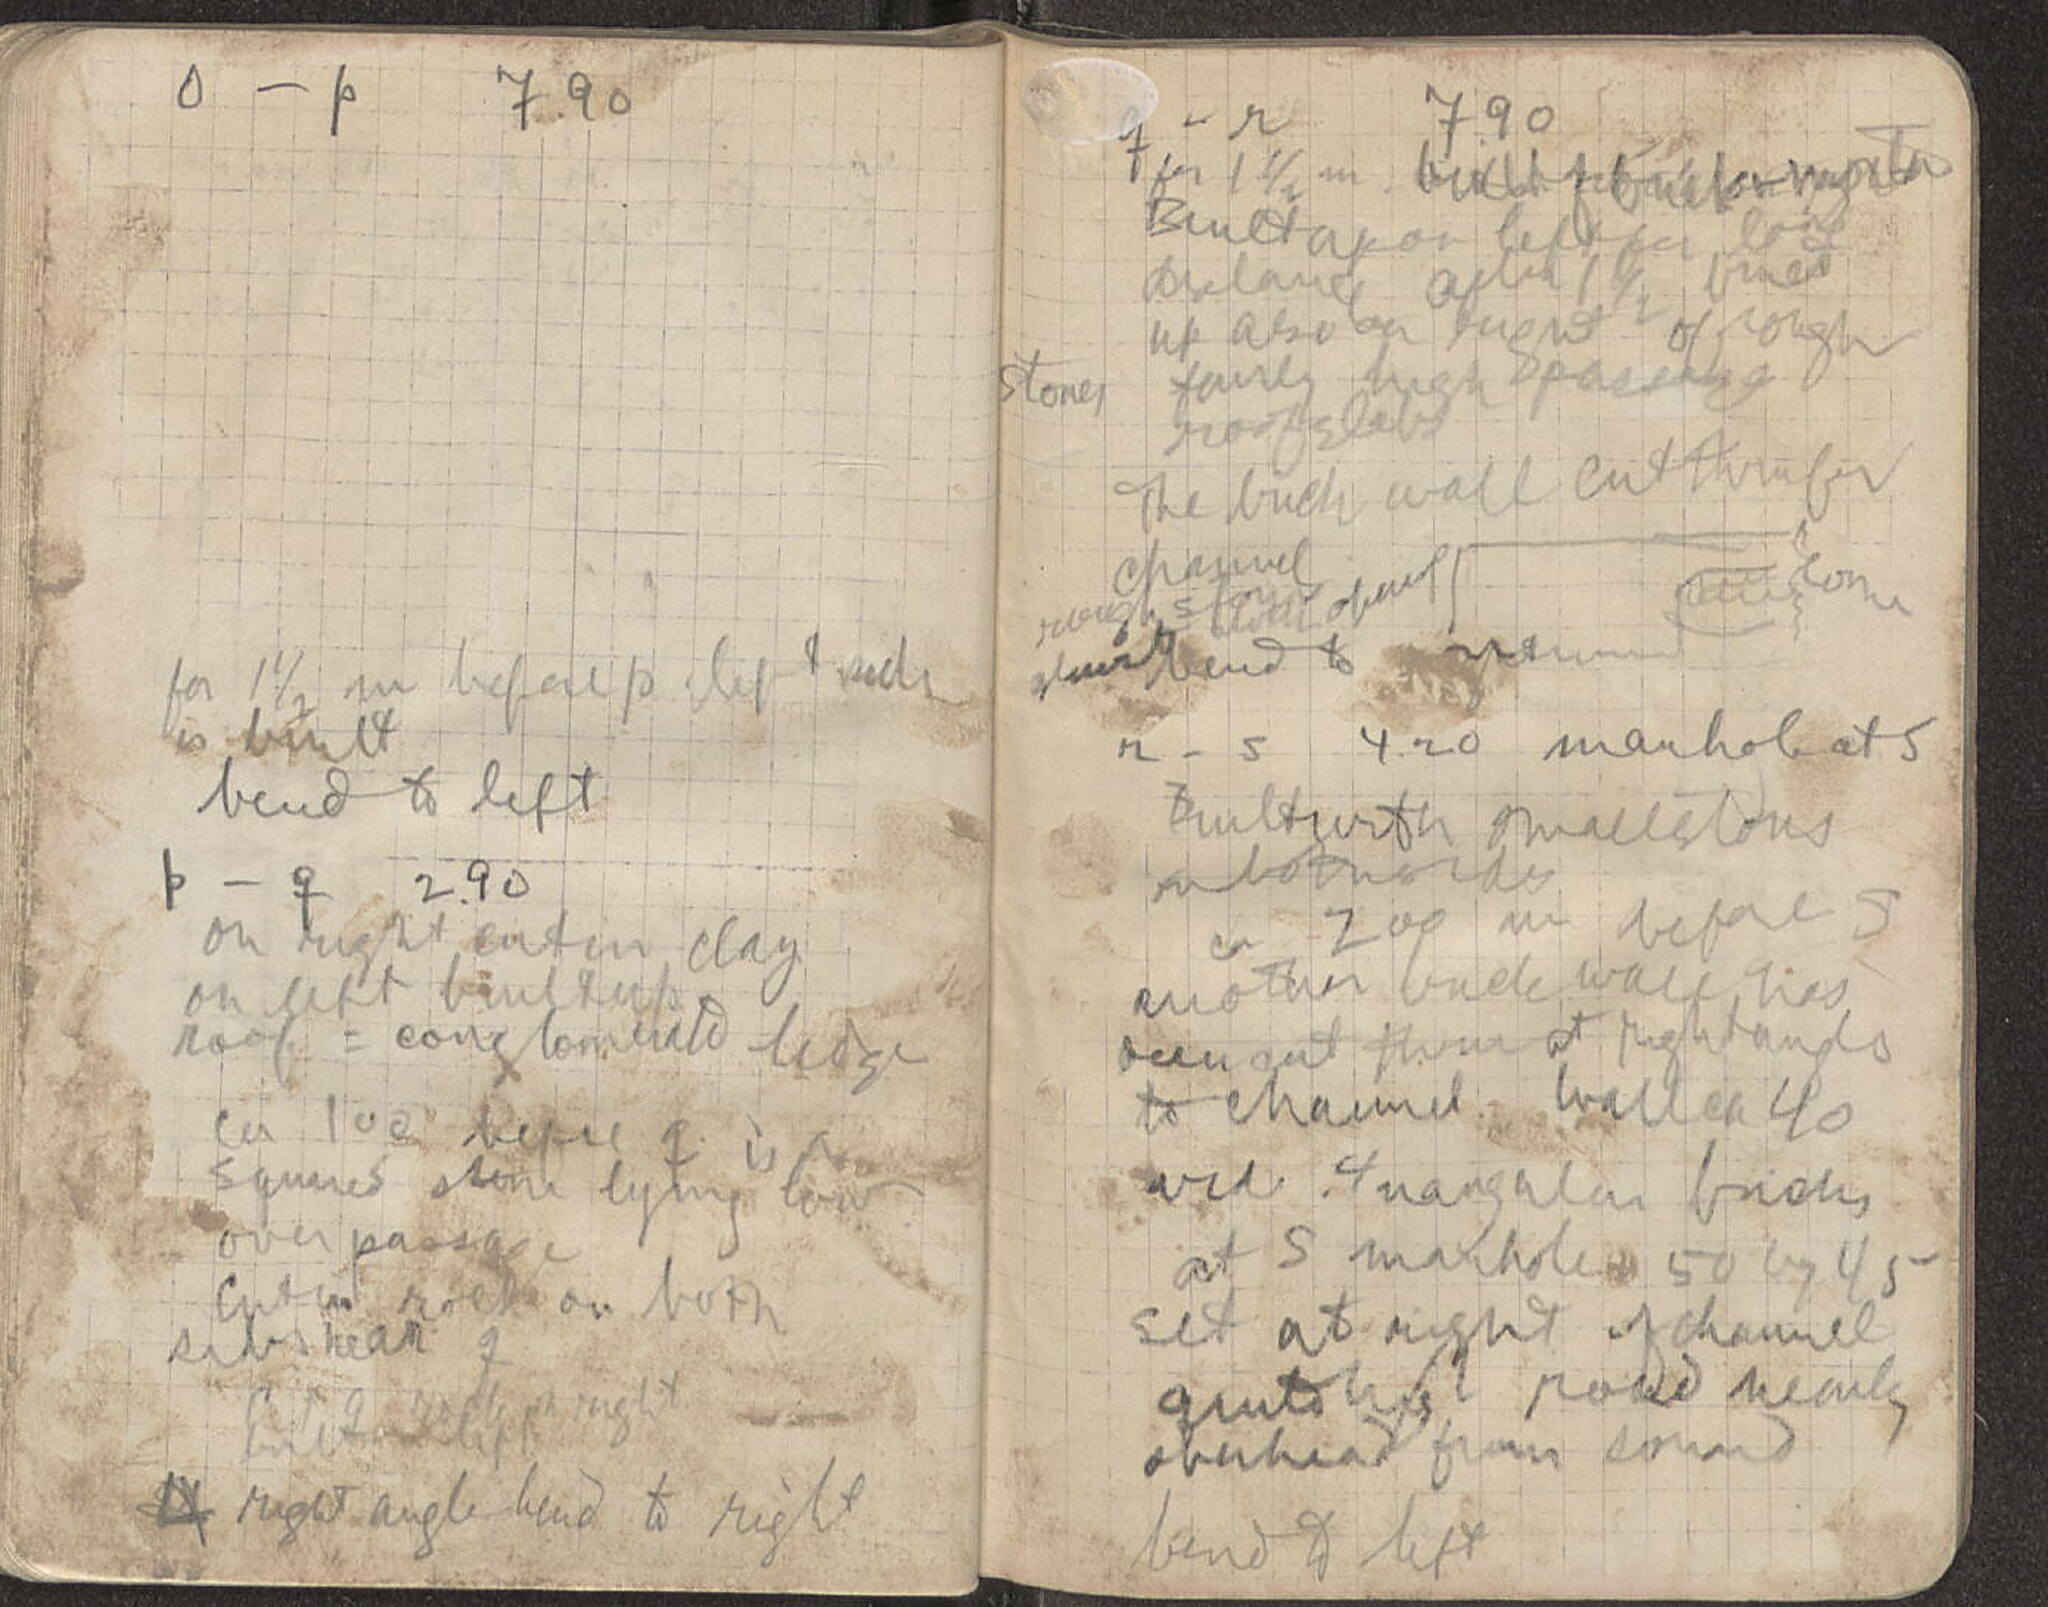 o - p 7.90
for 1 1/2 m before p left side
is built
bend to left
p - q 2.90
on right cut in clay
on left built up
roof = conglomerate ledge
ca 100 before q is a
squared stone lying low
over passage
Cut in rock on both
sides near q
at q rock on right
built on left
right angle bend to right
q - r 7.90
for 1 1/2 m
Built up on left for long
distance after 1 1/2 built
up also on right of rough
stones fairly high passage
roof slabs
The brick wall cut thru for
channel
rough stones
bend to
r - s 4.20 manhole at S
Built with small stones
on both sides
ca 200 m before S
another brick wall has
been cut thru at right angles
to channel. Wall ca 40
wide. 4 angular bricks
at S manhole 50 by 45
set at right of channel
quite high road nearly
overhead from sound
bend to left